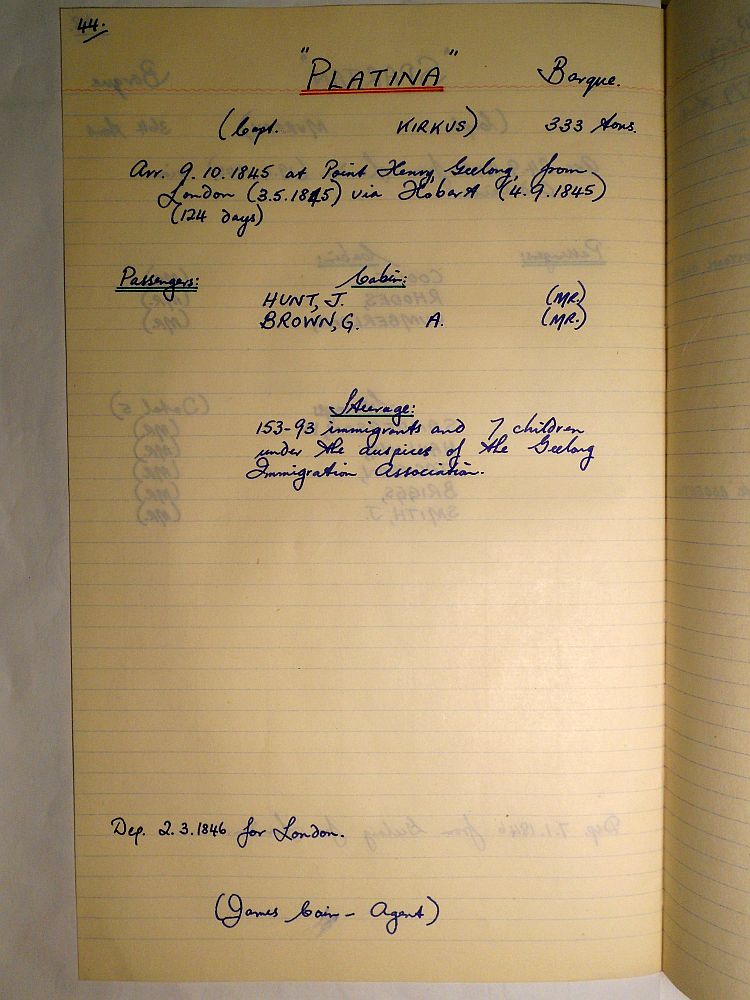 44.
"PLATINA" Barque.
(Capt. KIRKUS) 333 tons.
Arr. 9.10.1845 at Point Henry, Geelong, from
London (3.5.1845) via Hobart (4.9.1845)
(124 days)
Passengers: Cabin:
HUNT, J. (MR.)
BROWN, G. A. (MR.)
Steerage:
153-93 immigrants and 7 children
under the auspices of the Geelong
Immigration Association.
Dep. 2.3.1846 for London.
(James Cain - Agent)